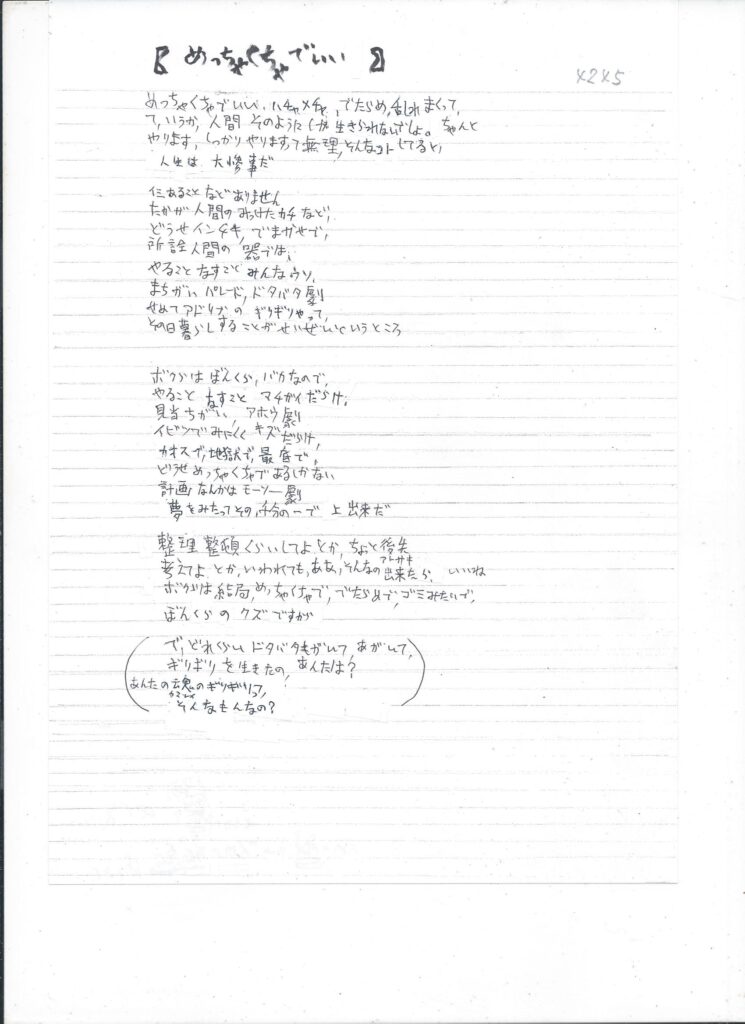 【 めっちゃくちゃでいい 】
×2×5
めっちゃくちゃでいい、ハチャメチャ、でたらめ、乱れまくって、
て、いうか、人間 そのようにしか 生きられないでしょ。ちゃんと
やります、しっかりやりますって無理、そんなコトしてると、
人生は 大惨事だ
たかが人間のみつけたカチなど、
どうせインチキ、でまかせで、
所詮人間の 器では、
やること なすこと みんなウソ、
まちがい パレード、ドタバタ劇
せめてアドリブの ギリギリやって、
その日暮らしすることがせいぜいというところ
ボクらは ぼんくら、バカなので、
やること なすこと マチガイだらけ、
見当ちがい、アホウ劇
イビツでみにくく キズだらけ、
カオスで、地獄で、最底で、
どうせめっちゃくちゃであるしかない
計画なんかは モーソー劇
夢をみたってその、千分の一で 上出来だ
整理 整頓くらいしてよとか、ちょと後先
アトサキ
考えてよ とか、いわれても、ああ、そんなの出来たら、いいね
ボクらは 結局、めっちゃくちゃで、でたらめで、ゴミみたいで、
ぼんくら の クズ ですが
で、どれくらい ドタバタもがいて あがいて、
ギリギリ を生きたの、あんたは?
あんたの魂のギリギリって、
そんなもんなの?